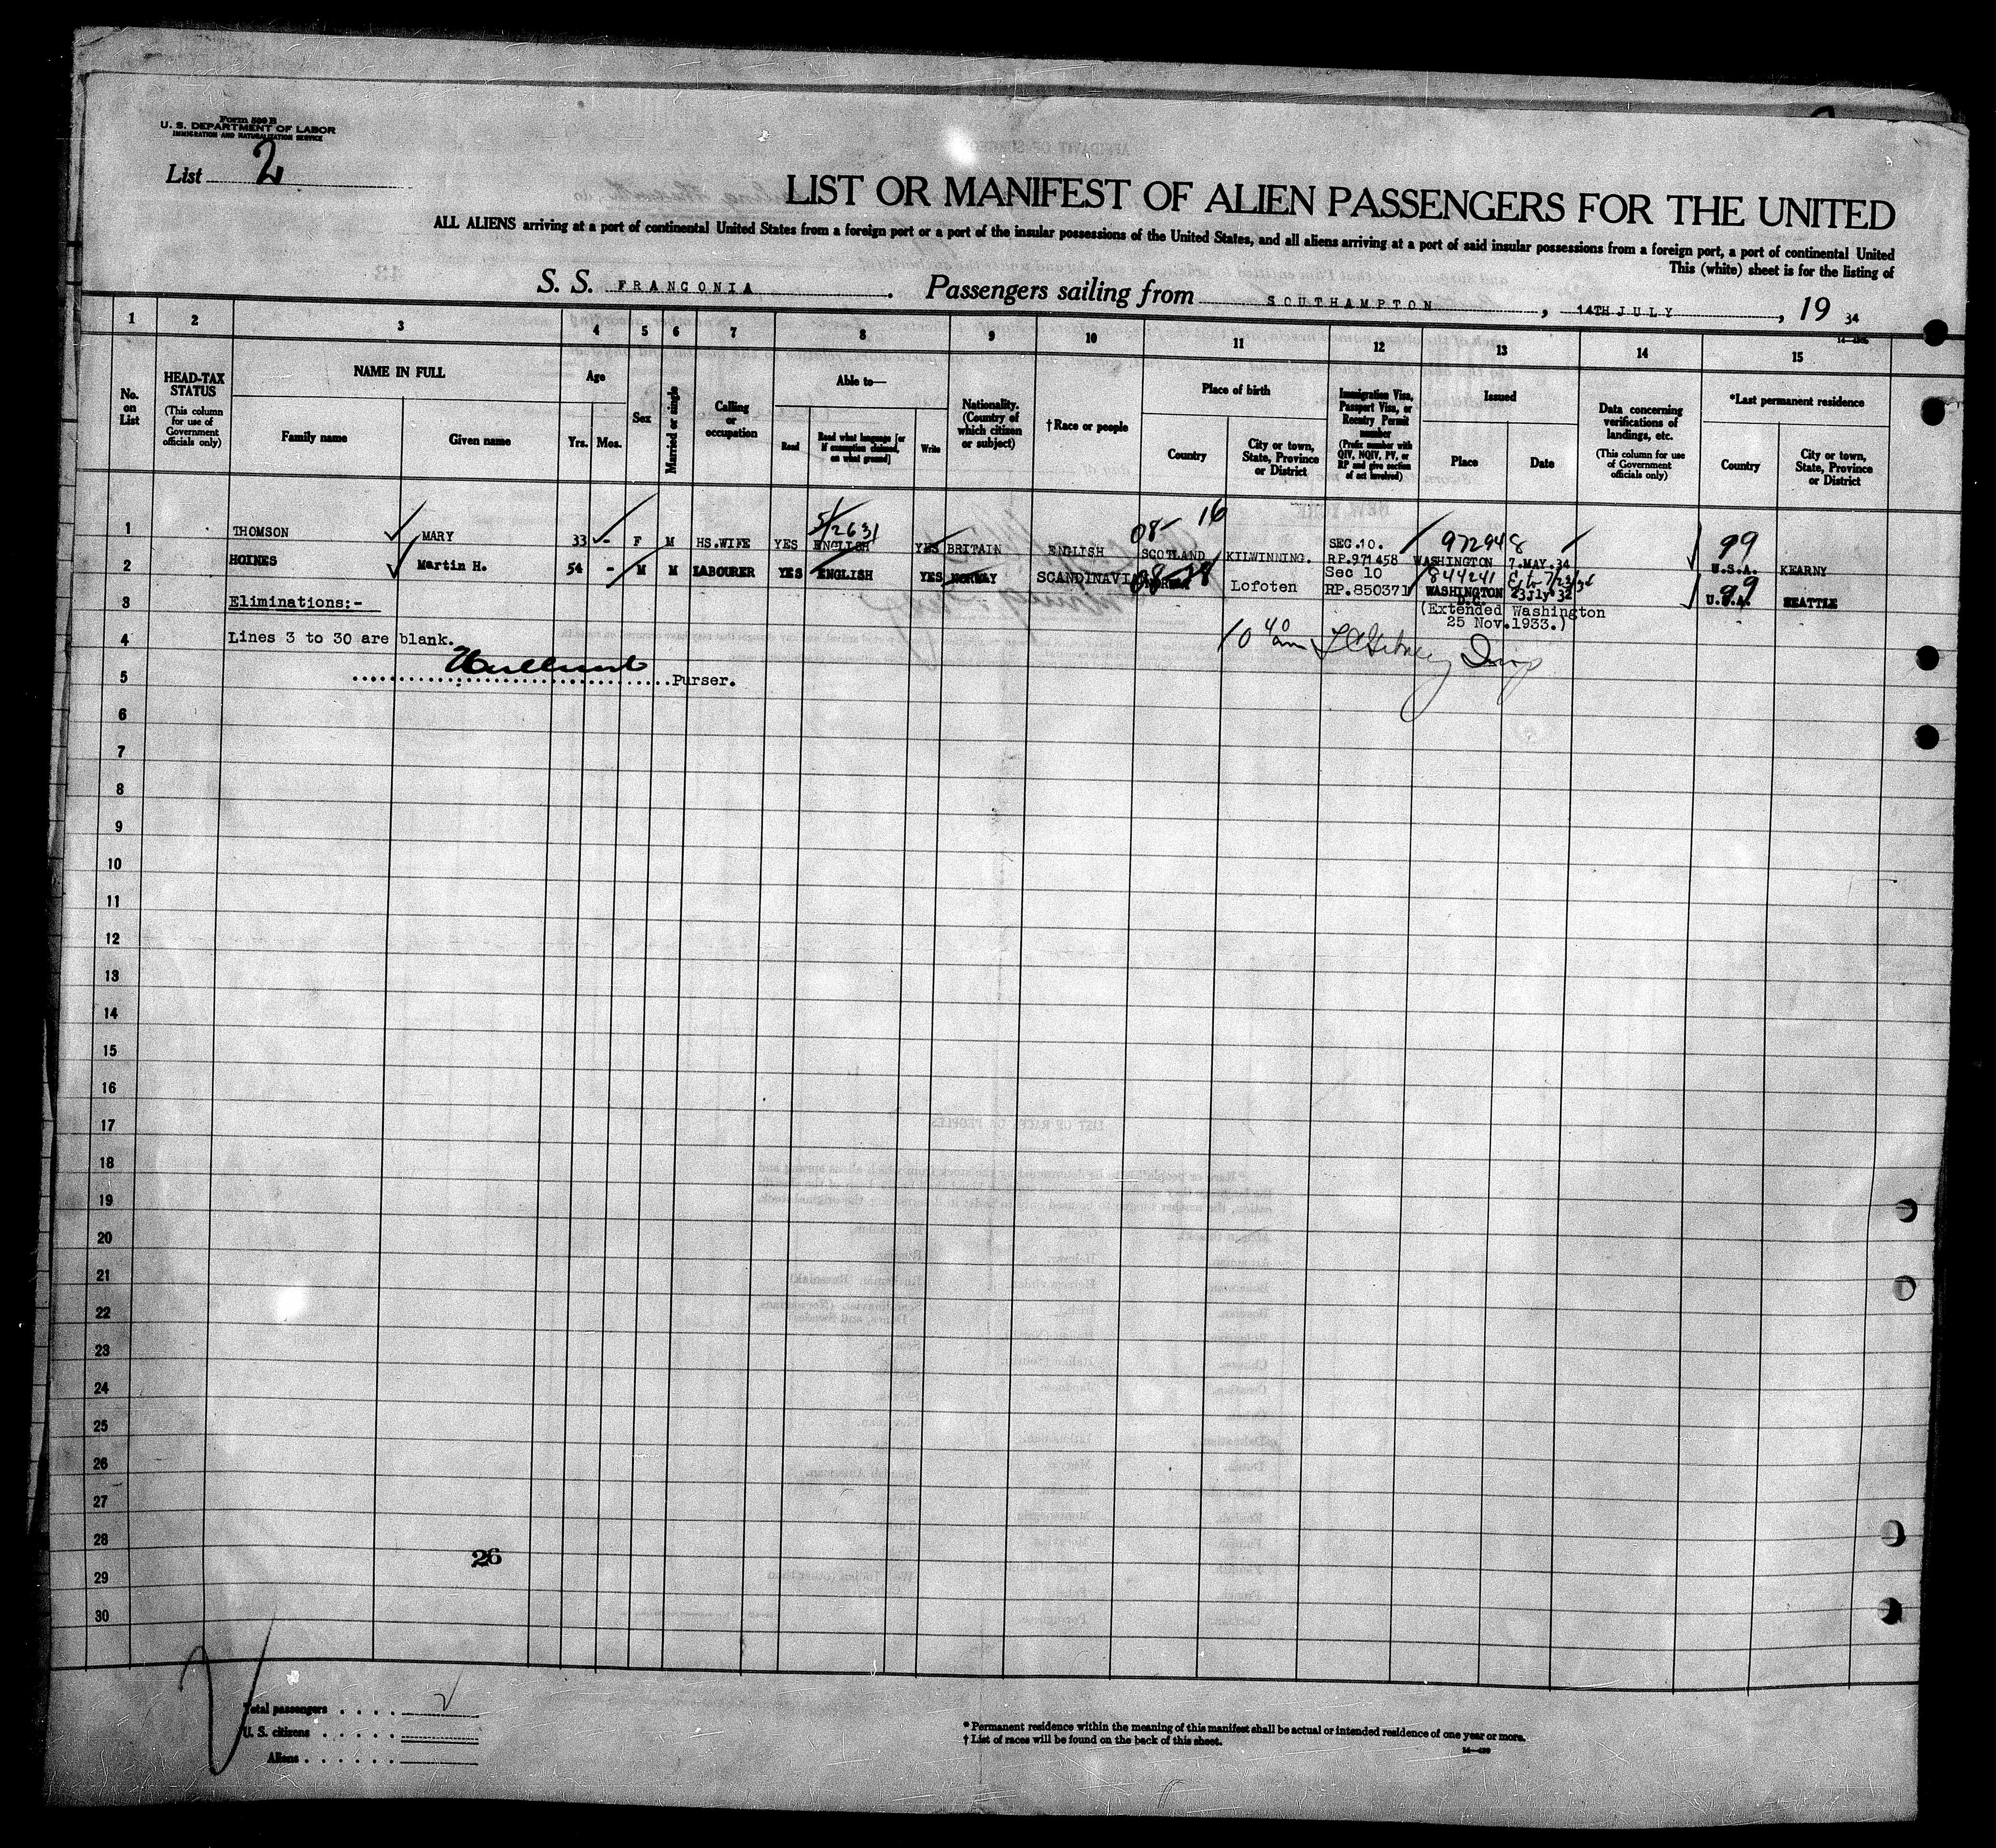 Form 500 B
U. S. DEPARTMENT OF LABOR
IMMIGRATION AND NATURALIZATION SERVICE
List 2
LIST OR MANIFEST OF ALIEN PASSENGERS FOR THE UNITED
ALL ALIENS arriving at a port of continental United States from a foreign port or a port of the insular possessions of the United States, and all aliens arriving at a port of said insular possessions from a foreign port, a port of continental United
This (white) sheet is for the listing of
S. S. FRANCONIA. Passengers sailing from SOUTHAMPTON, 14TH JULY, 19 34
1 2 3 4 5 6 7 8 9 10 11 12 13 14 15
No. on List
HEAD-TAX STATUS
(This column for use of Government officials only)
NAME IN FULL
Family name
Given name
Age
Yrs. Mos.
Sex
Married or single
Calling or occupation
Able to—
Read
Read what language [or if exemption claimed, on what ground]
Write
Nationality. (Country of which citizen or subject)
†Race or people
Place of birth
Country
City or town, State, Province or District
Immigration Visa, Passport Visa, or Reentry Permit number
(Prefix number with QIV, NQIV, PV, or RP and give section of act involved)
Issued
Place
Date
Data concerning verifications of landings, etc.
(This column for use of Government officials only)
*Last permanent residence
Country
City or town, State, Province or District
5/2631
08- 16
972948
99
1 THOMSON MARY 33 - F M HS.WIFE YES ENGLISH YES BRITAIN ENGLISH SCOTLAND KILWINNING. SEC.10. RP.971458 WASHINGTON 7.MAY.34 U.S.A. KEARNY
844241
99
2 HOINES Martin H. 54 - M M LABOURER YES ENGLISH YES NORWAY SCANDINAVIAN Lofoten Sec 10 RP.850371 WASHINGTON 23 July 32 U.S.A. SEATTLE
(Extended Washington
25 Nov.1933.)
3 Eliminations:-
4 Lines 3 to 30 are blank.
10 40 am
5 Purser.
6
7
8
9
10
11
12
13
14
15
16
17
18
19
20
21
22
23
24
25
26
27
28
26
29
30
Total passengers
U. S. citizens
Aliens
* Permanent residence within the meaning of this manifest shall be actual or intended residence of one year or more.
† List of races will be found on the back of this sheet.